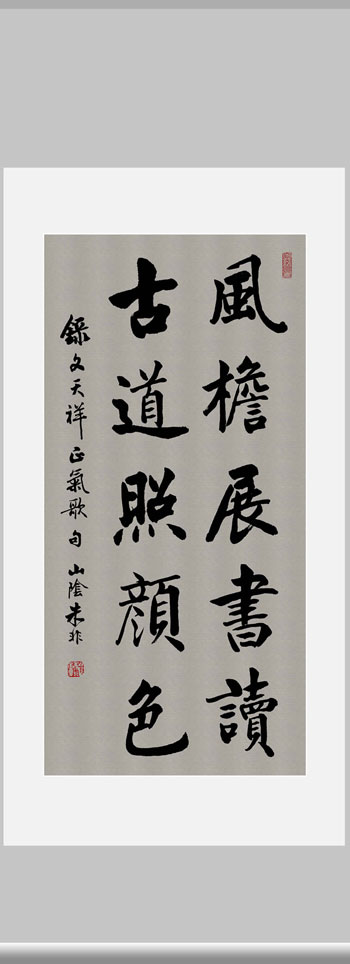 風檐展書讀
古道照顏色
錄文天祥正氣歌句 山陰朱非